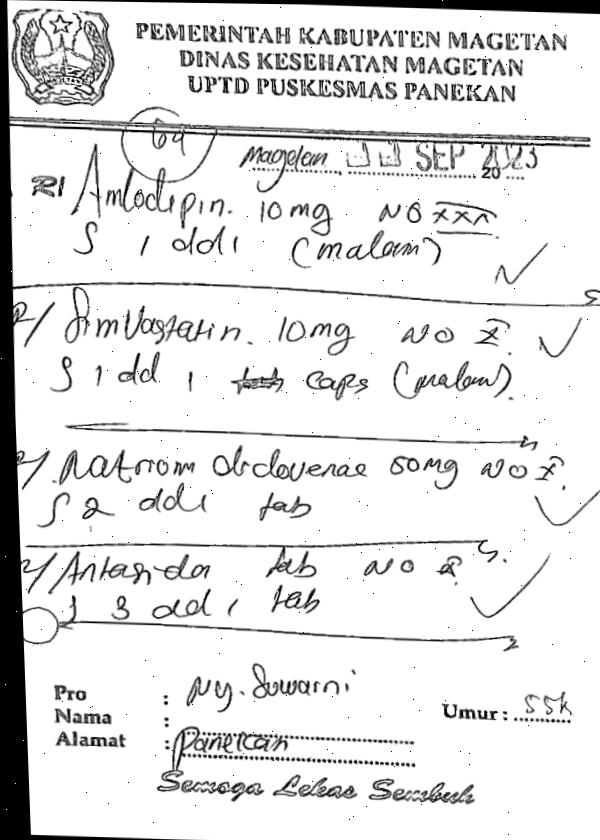 PEMERINTAH KABUPATEN MAGETAN
DINAS KESEHATAN MAGETAN
UPTD PUSKESMAS PANEKAN
69
Magetan, 11 SEP 2023
R/ Amlodipin. 10 mg NO XXX
S 1 dd 1 (malam)
R/ Simvastatin. 10 mg NO X
S 1 dd 1 caps (malam)
R/ Natrium diclovenac 50 mg NO X
S 2 dd 1 tab
R/ Antasida tab NO X
S 3 dd 1 tab
Pro : Ny. Suwarni
Nama : Umur : 55
Alamat : Panekan
Semoga Lekas Sembuh